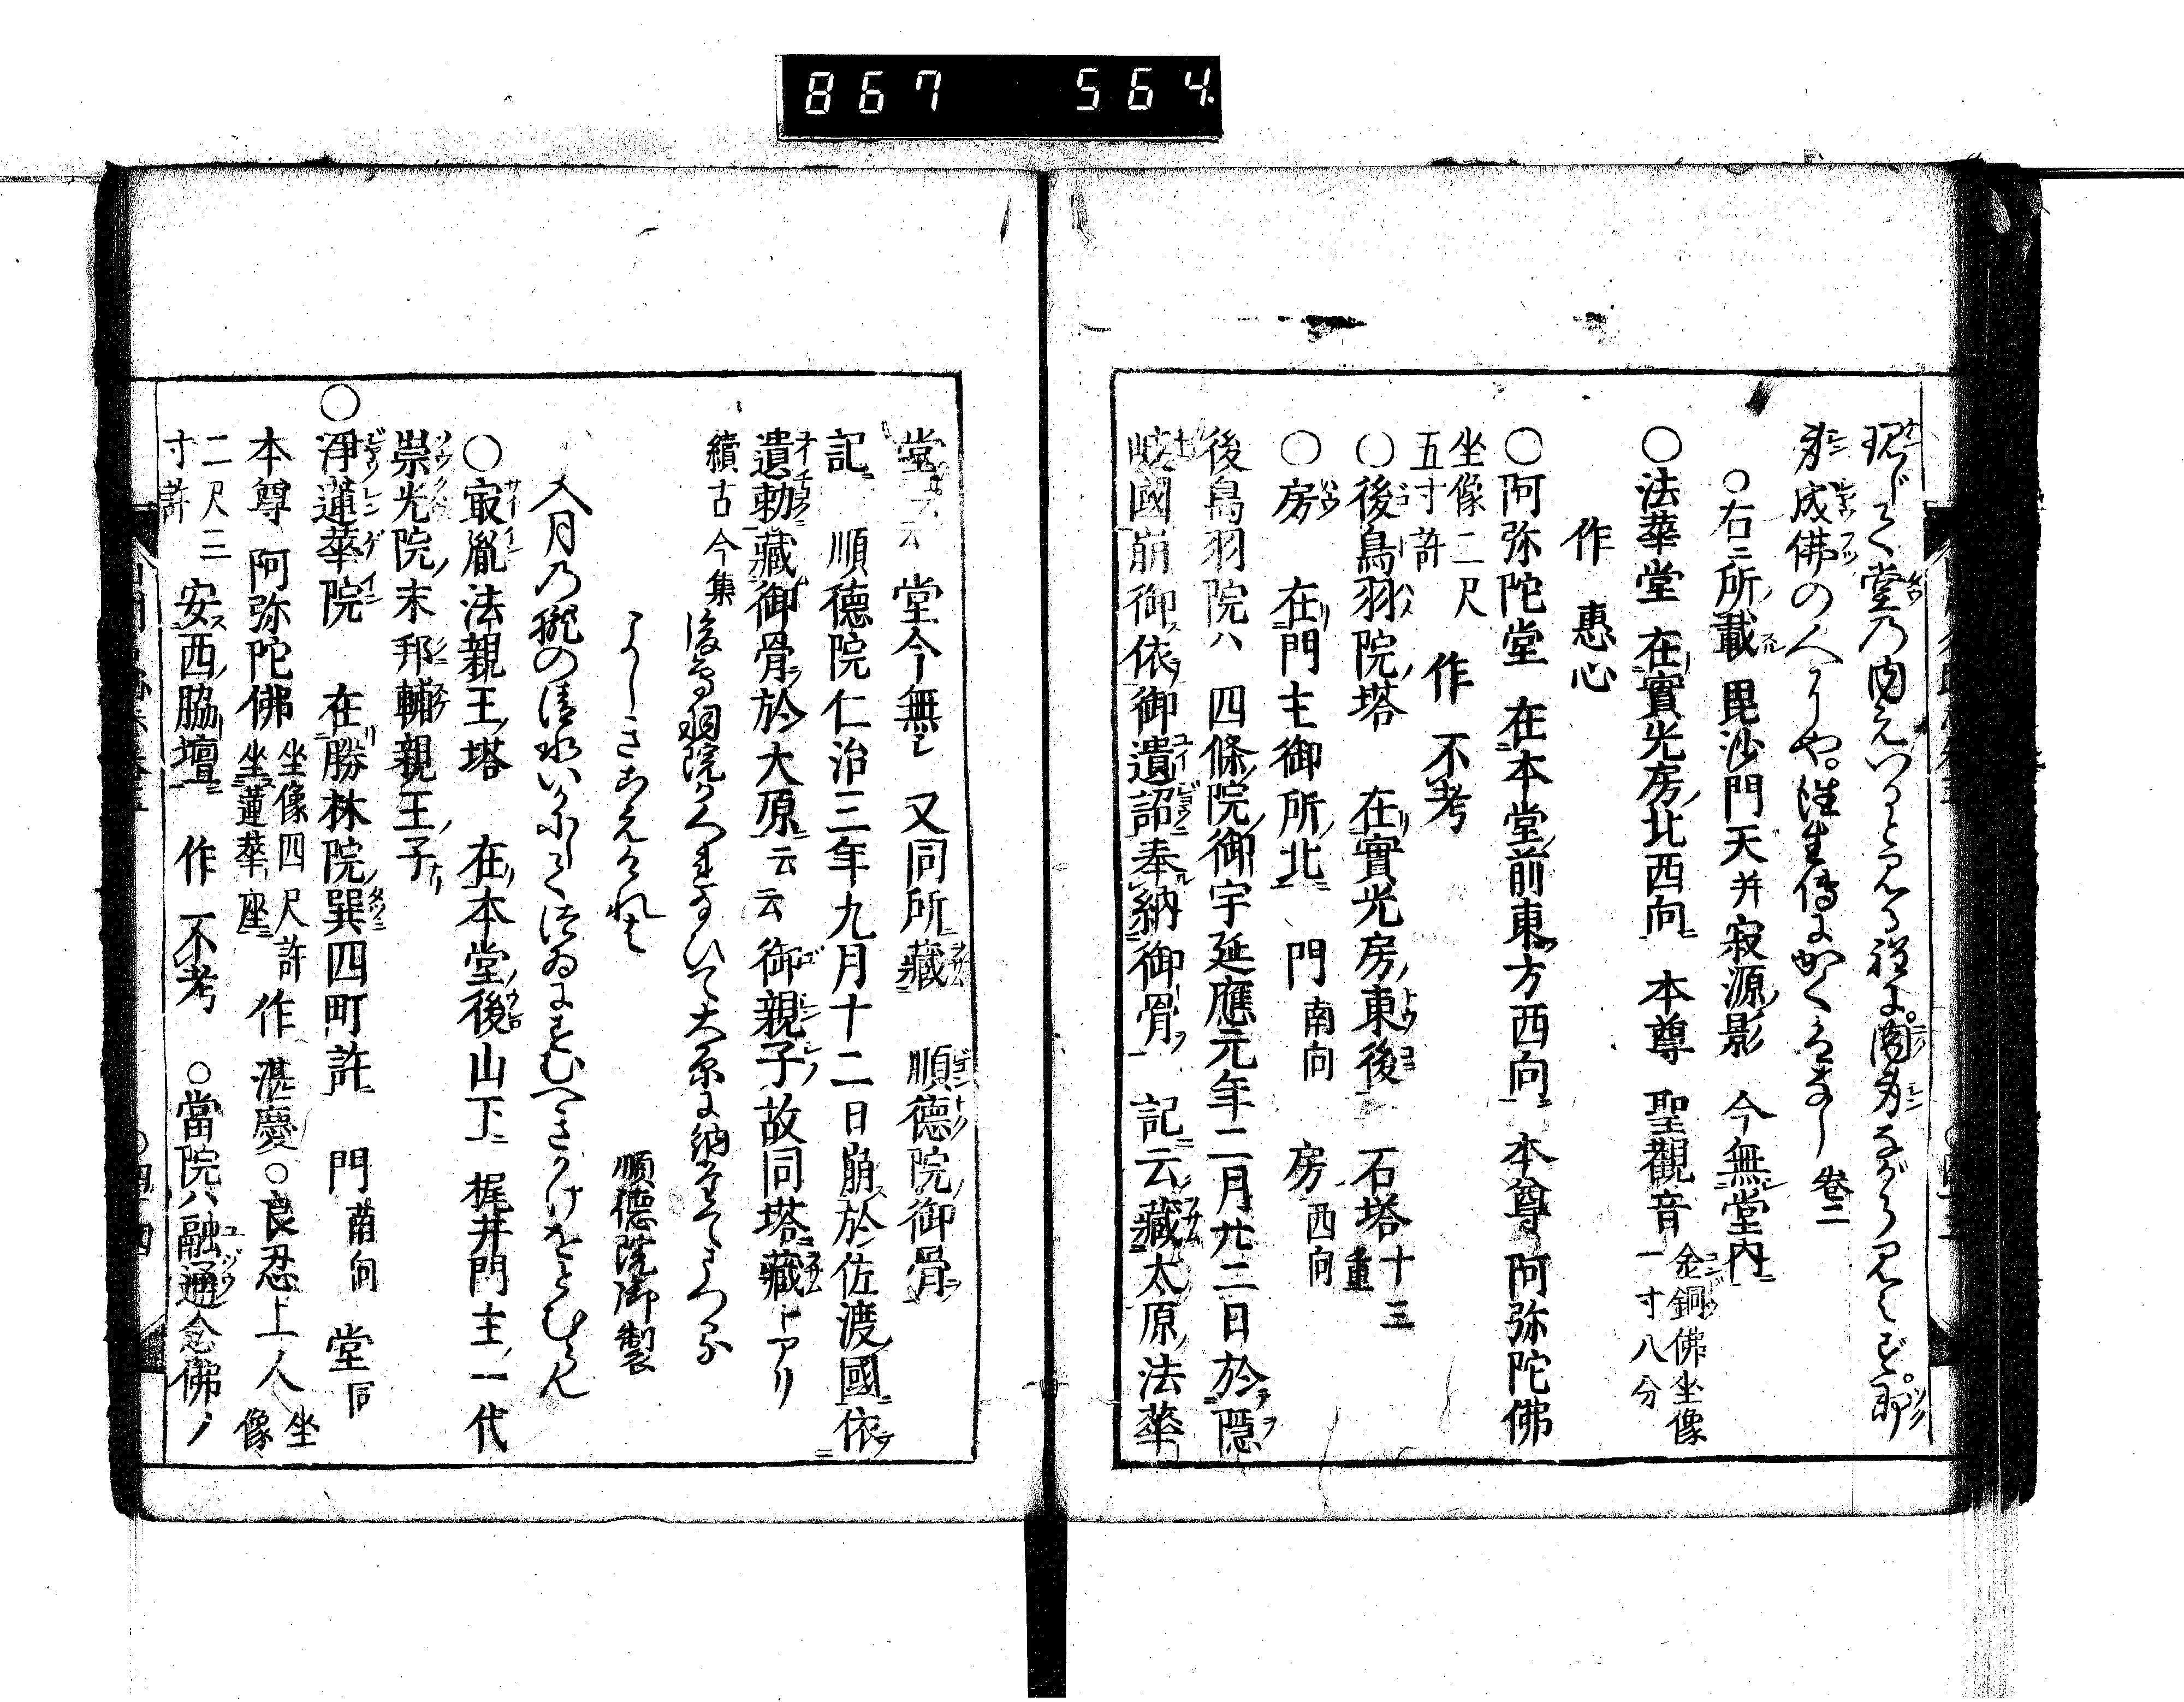 867 564
現じて堂乃内えいるとみる程に肉身ながらみえず即
身成佛の人にや往生傳にかくるなし 卷二
○右ニ所載毘沙門天并寂源ノ影 今無堂内
○法華堂 在實光房ノ北西向 本尊 聖觀音 金銅佛坐像一寸八分
作 惠心
○阿弥陀堂 在本堂前東ノ方西向 本尊阿弥陀佛
坐像二尺五寸許 作 不考
○後鳥羽院ノ塔 在實光房ノ東後 石塔 十三重
○房 在門主御所ノ北 門 南向 房 西向
後鳥羽院ハ 四條ノ院ノ御宇延應元年二月廿二日於隠
岐國崩御依御遺詔奉納御骨 記云藏太原ノ法華
堂云 堂今無シ 又同所藏 順德院ノ御骨
記 順德院仁治三年九月十二日崩於佐渡ノ國依
遺勅藏御骨於大原云云 御親子故同塔藏トアリ
續古今集 後鳥羽院かくれたまひて大原に納たてまつる
よしきこえけれは
順德院御製
入月乃朧の清水いかにしてつゐにすむへきかけをとむらん
○㝡胤法親王ノ塔 在本堂ノ後山下 梶井門主ノ一代
崇光院ノ末邦輔親王ノ子ナリ
○淨蓮華院 在勝林院ノ巽四町許 門 南向 堂 同
本尊 阿弥陀佛 坐像四尺許坐蓮華座 作 湛慶 ○良忍上人 坐像
二尺三寸許 安西ノ脇壇 作 不考 ○當院ハ融通念佛ノ